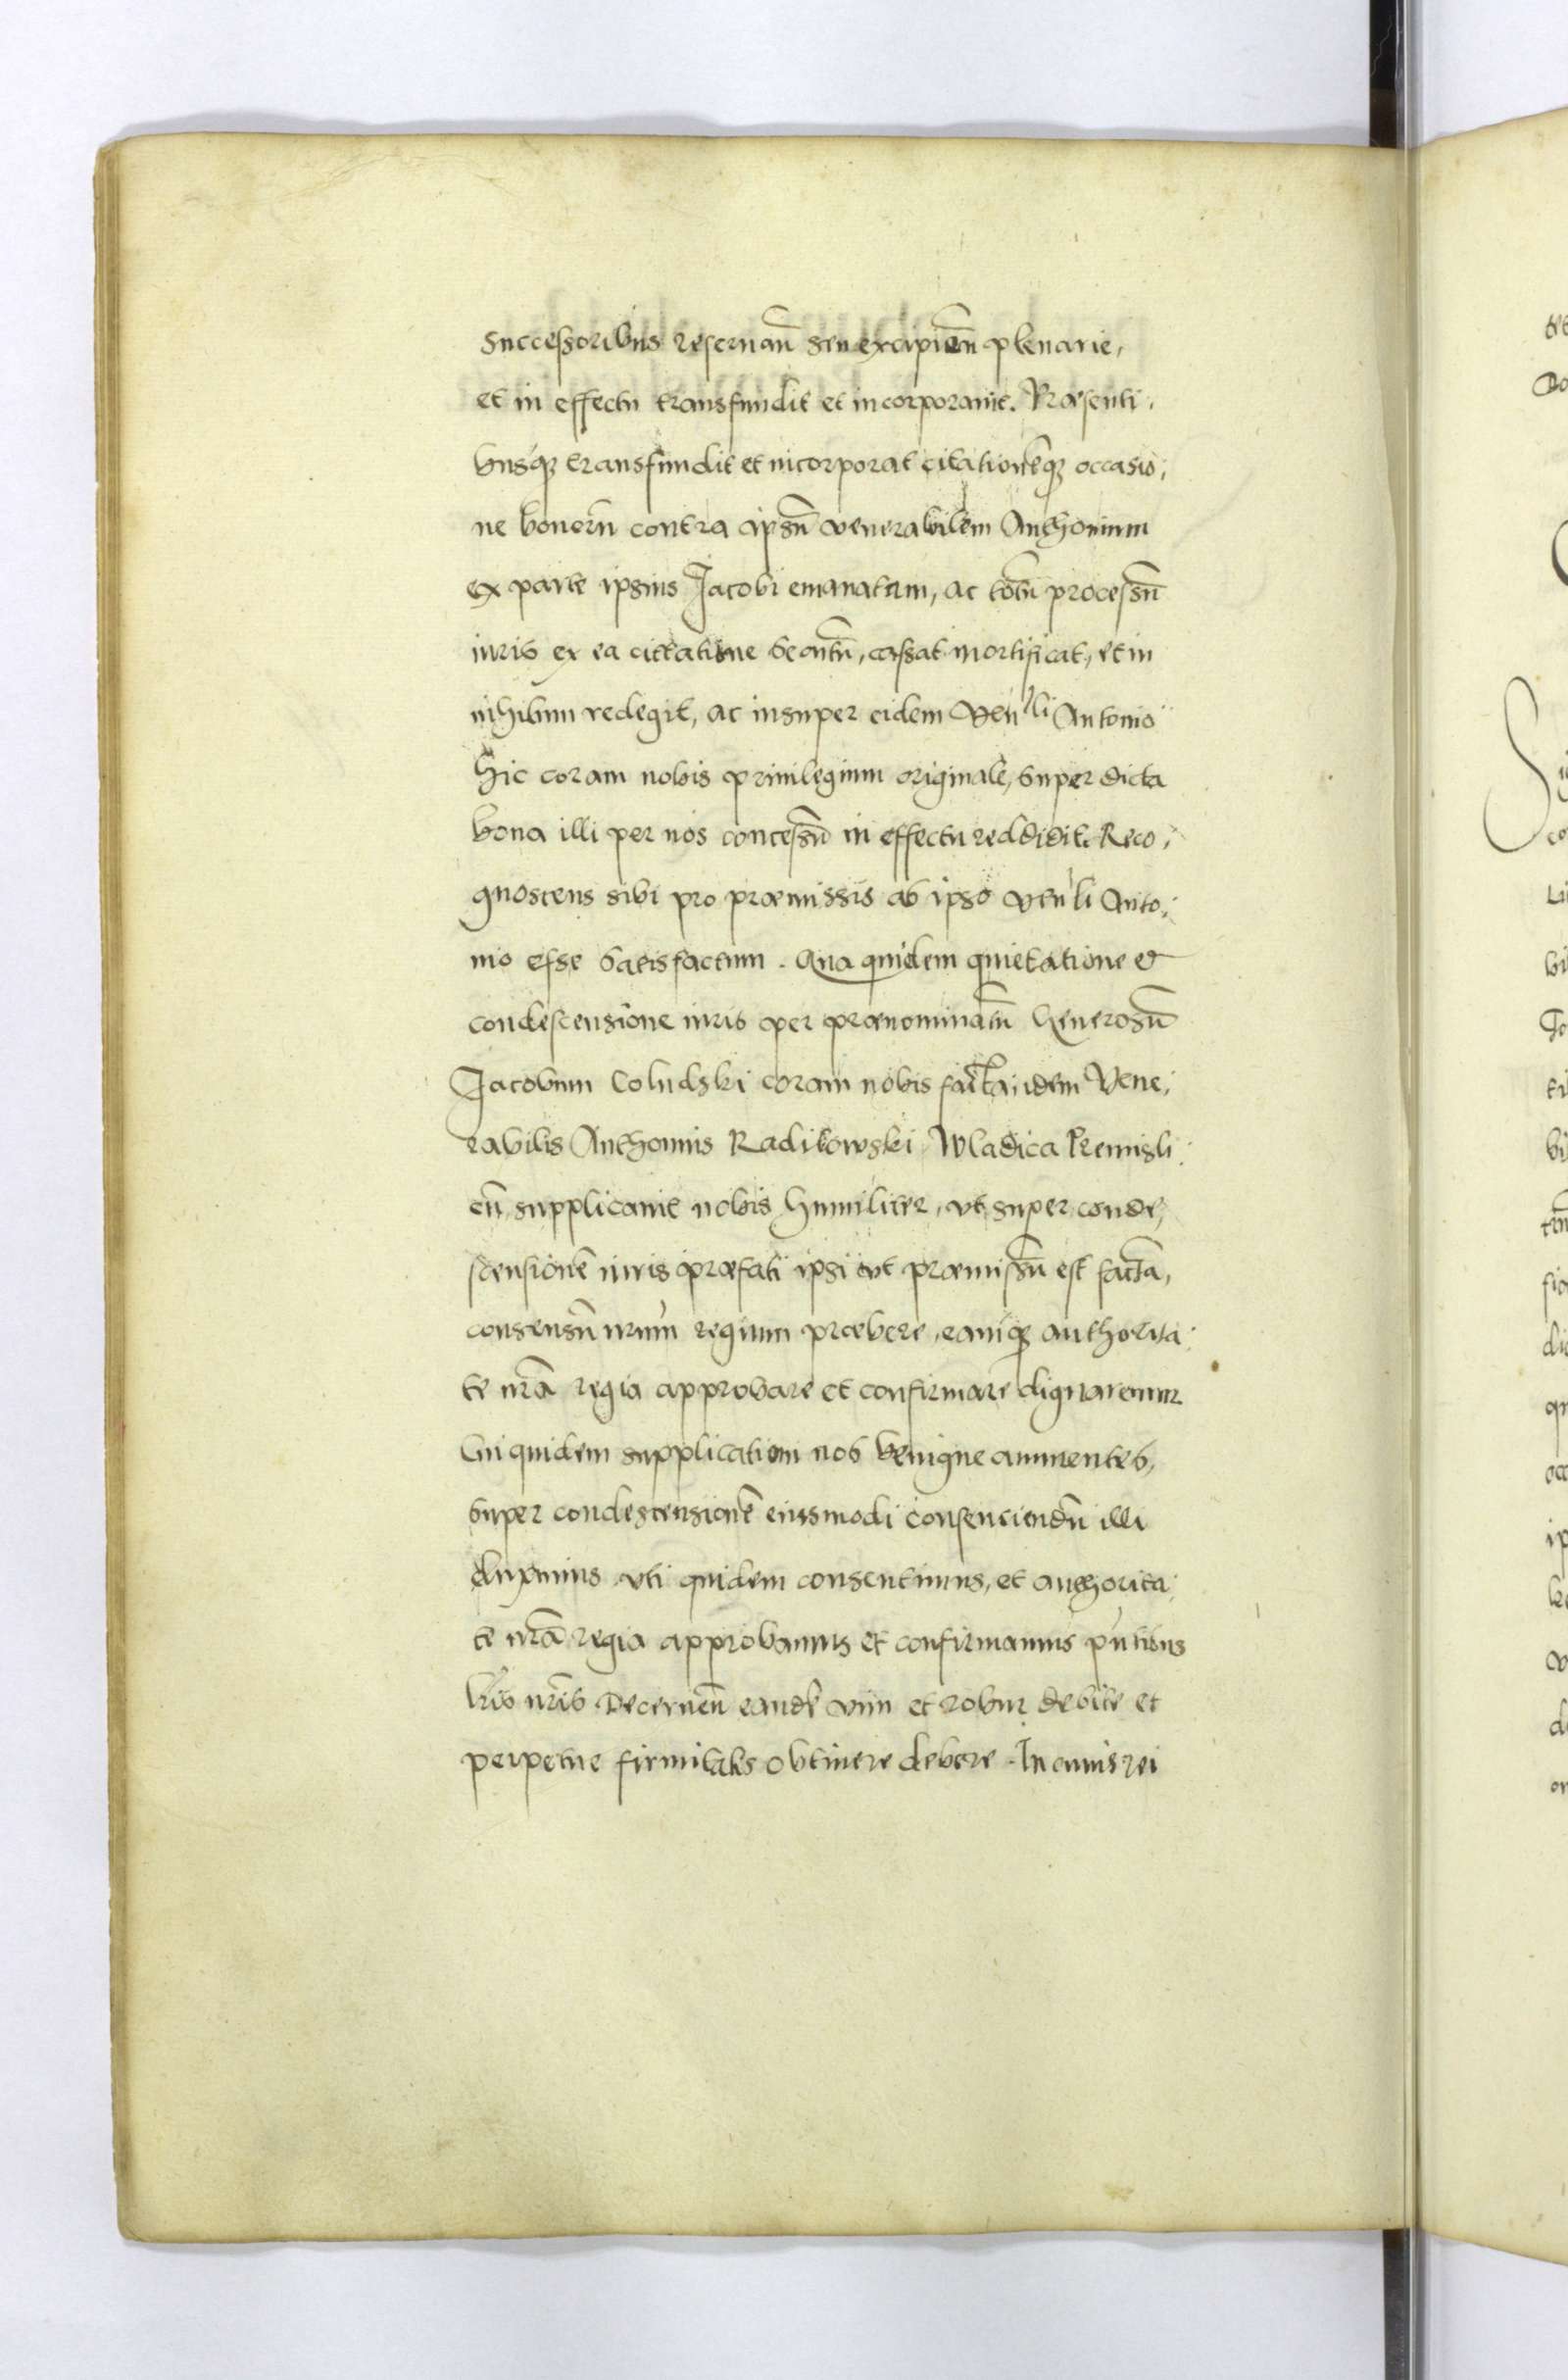 Successoribus reseruan̄ seu excipien̄ plenarie,
et in effectu transfundit et incorporauit. Præsenti,
busq₃ transfundit et incorporat citationēq₃ occasio,
ne bonorū contra ipsū venerabilem Anthonium
ex parte ipsius Jacobi emanatam, ac totū processū
iuris ex ea citatione secutū, cassat mortificat, et in
nihilum redegit, ac insuper eidem Ven̄li Antonio
hic coram nobis priuilegium originale, super dicta
bona illi per nos concessū in effectu reddidit. Reco,
gnoscens sibi pro præmissis ab ipso ven̄li Anto,
nio esse satisfactum. Qua quidem quietatione et
condescensione iuris per prænominatū Generosū
Jacobum Coludski coram nobis facta, idem Vene,
rabilis Anthonius Radilowski Wladica Premisli
en̄ supplicauit nobis humiliter, vt super conde,
scensionē iuris præfati ipsi vt præmissū est factā,
consensū nrum̄ regium præbere, eamq₃ authorita
te nrā regia approbare et confirmare dignaremur
Cui quidem supplicationi nos benigne annuentes,
super condescensionē eiusmodi consenciendū illi
duximus vti quidem consentimus, et authorita
te nrā regia approbamus et confirmamus pn̄tibus
lris nris Decernen̄ eandē vim et robur debite et
perpetue firmitatis obtinere debere. In cuius rei